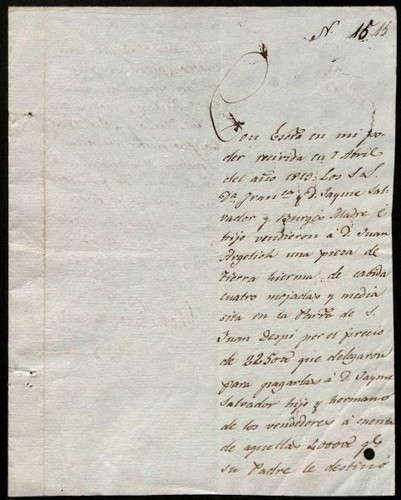 N. 15 15
Con Escra en mi po-
der recivida en 7 Abril
del año 1819. Los S.S.
Da. Franca y D. Jayme Sal-
vador y Burgés Madre é
hijo vendieron á D. Juan
Argelich una pieza de
tierra hierma de cabida
cuatro mojadas y media
sita en la Parra. de S.
Juan Despi por el precio
de 2250 que delegaron
para pagarlas á D. Jayme
Salvador hijo y hermano
de los vendedores á cuenta
de aquellas 2000 qe.
su Padre le destinó